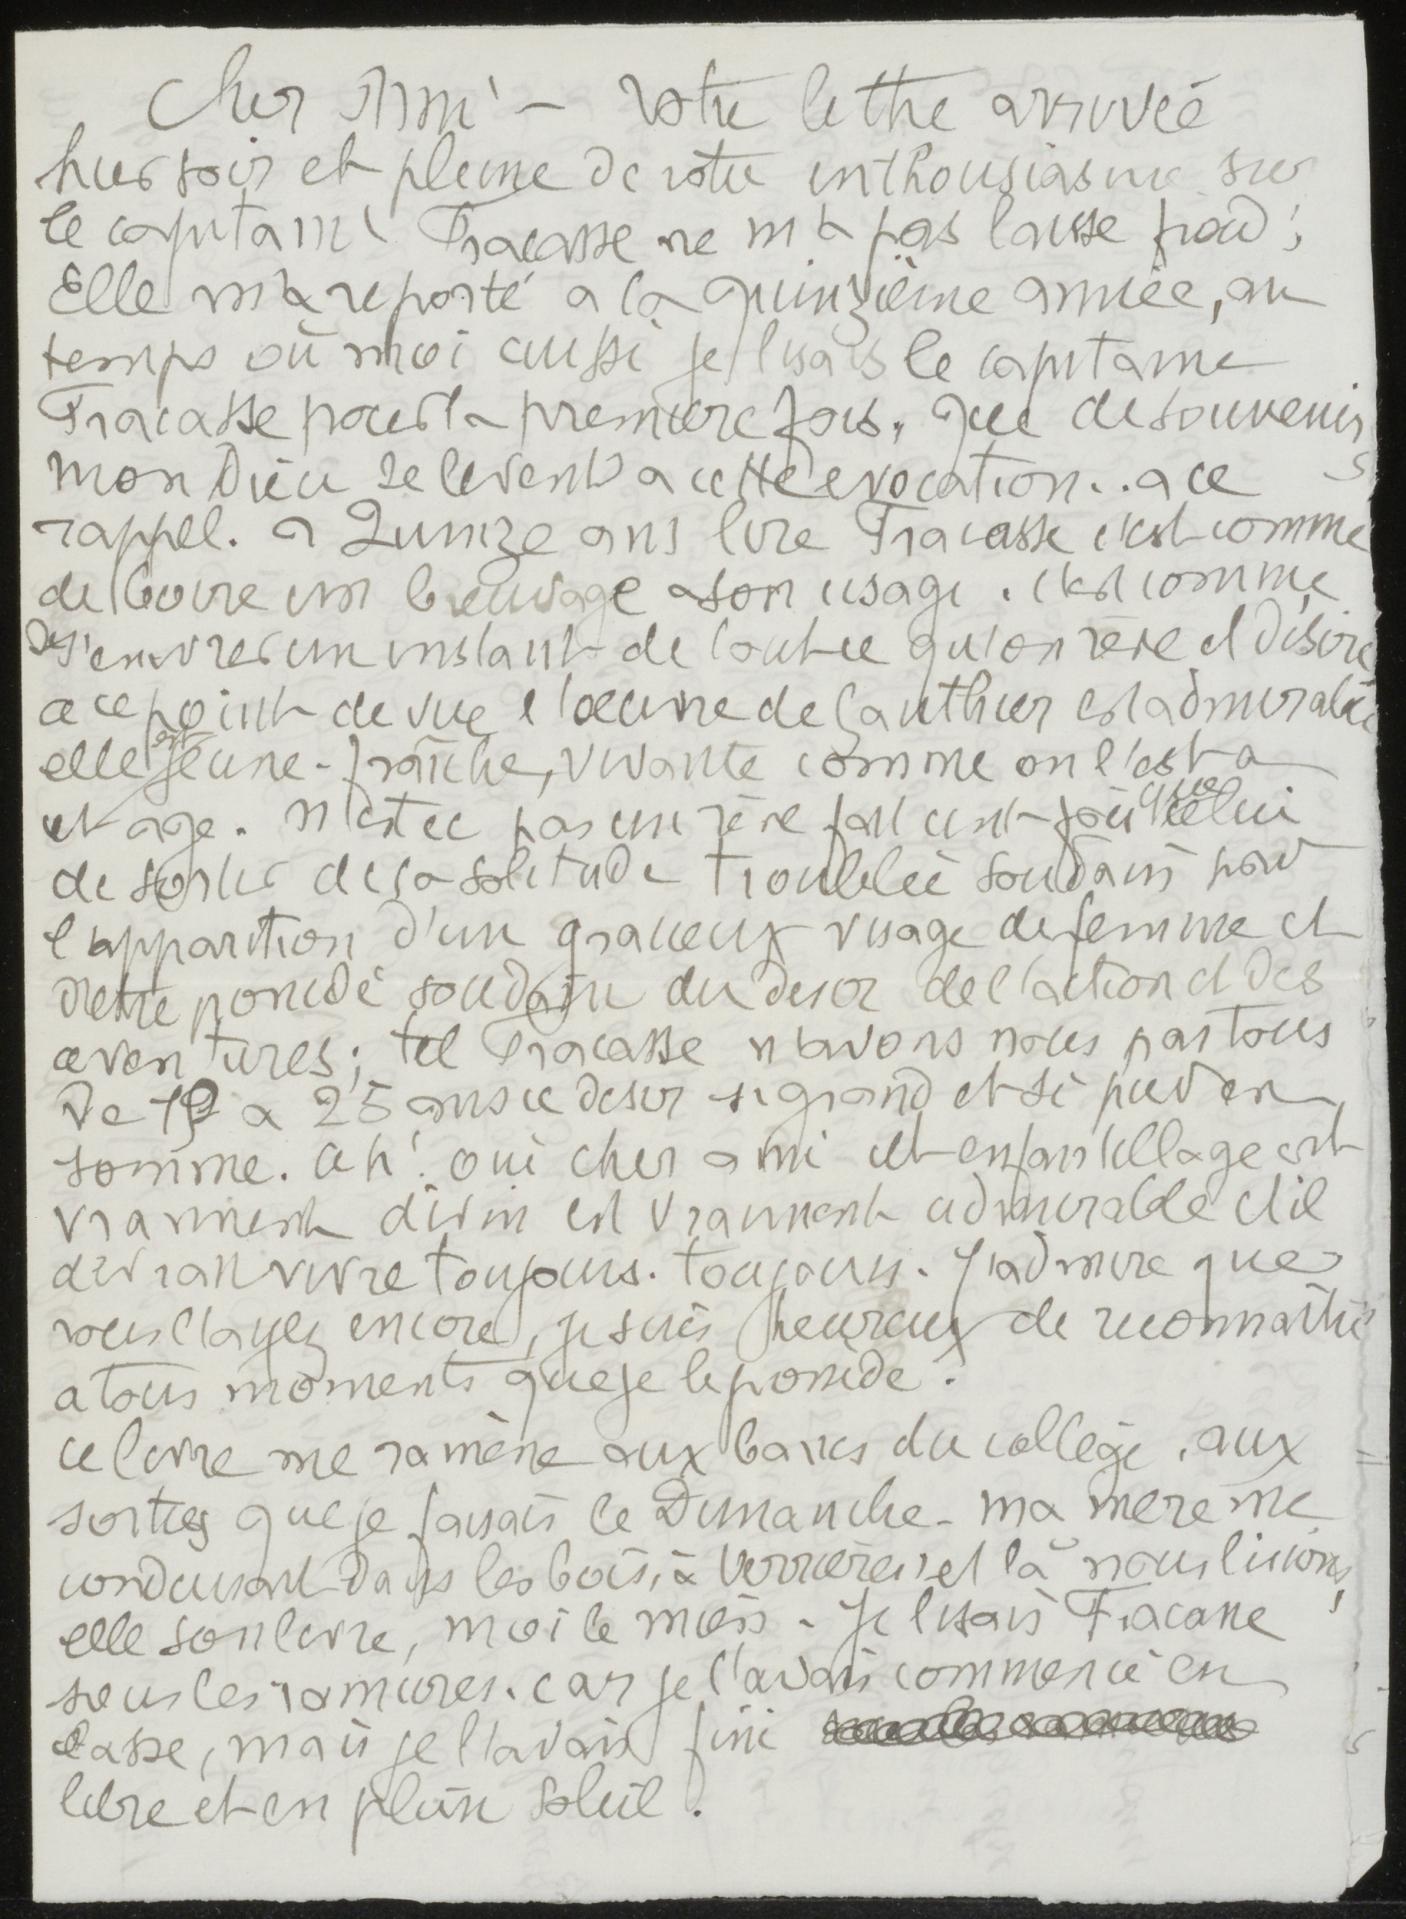 Cher Ami - votre lettre arrivée
hier soir et pleine de votre enthousiasme sur
le capitaine Fracasse ne m'a pas laissé froid ;
Elle m'a reporté a la quinzième année, au
temps où moi aussi je lisais le capitaine
Fracasse pour la première fois, que de souvenirs
mon Dieu se levent a cette evocation.. a ce
rappel. a Quinze ans lire Fracasse c'est comme
de boire un breuvage a son usage. c'est comme
de s'enivrer un instant de tout ce qu'on rève et désire
a ce point de vue l'oeuvre de Gauthier est admirable
elle est jeune - fraîche, vivante comme on l'est a
cet age. n'est ce pas un rève fait cent fois que celui
de sortir de sa solitude troublée soudain par
l'apparition d'un gracieux visage de femme et
d'etre possédé soudain du desir de l'action et des
aventures ; tel Fracasse n'avons nous pas tous
De 19 a 25 ans ce desir si grand et si puéril en
somme. ah ! oui cher ami cet enfantillage est
vraiment divin est vraiment admirable et il
devrait vivre toujours. toujours. J'admire que
vous l'ayez encore, je suis heureux de reconnaître
a tous moments que je le possède.
ce livre me ramène aux bancs du collège, aux
sorties que je faisais le Dimanche - ma mère me
conduisait dans les bois, a Verrières, et là nous lisions,
elle son livre, moi le mien - Je lisais Fracasse
sous les ramures. car je l'avais commencé en
classe, mais je l'avais fini
libre et en plein soleil.